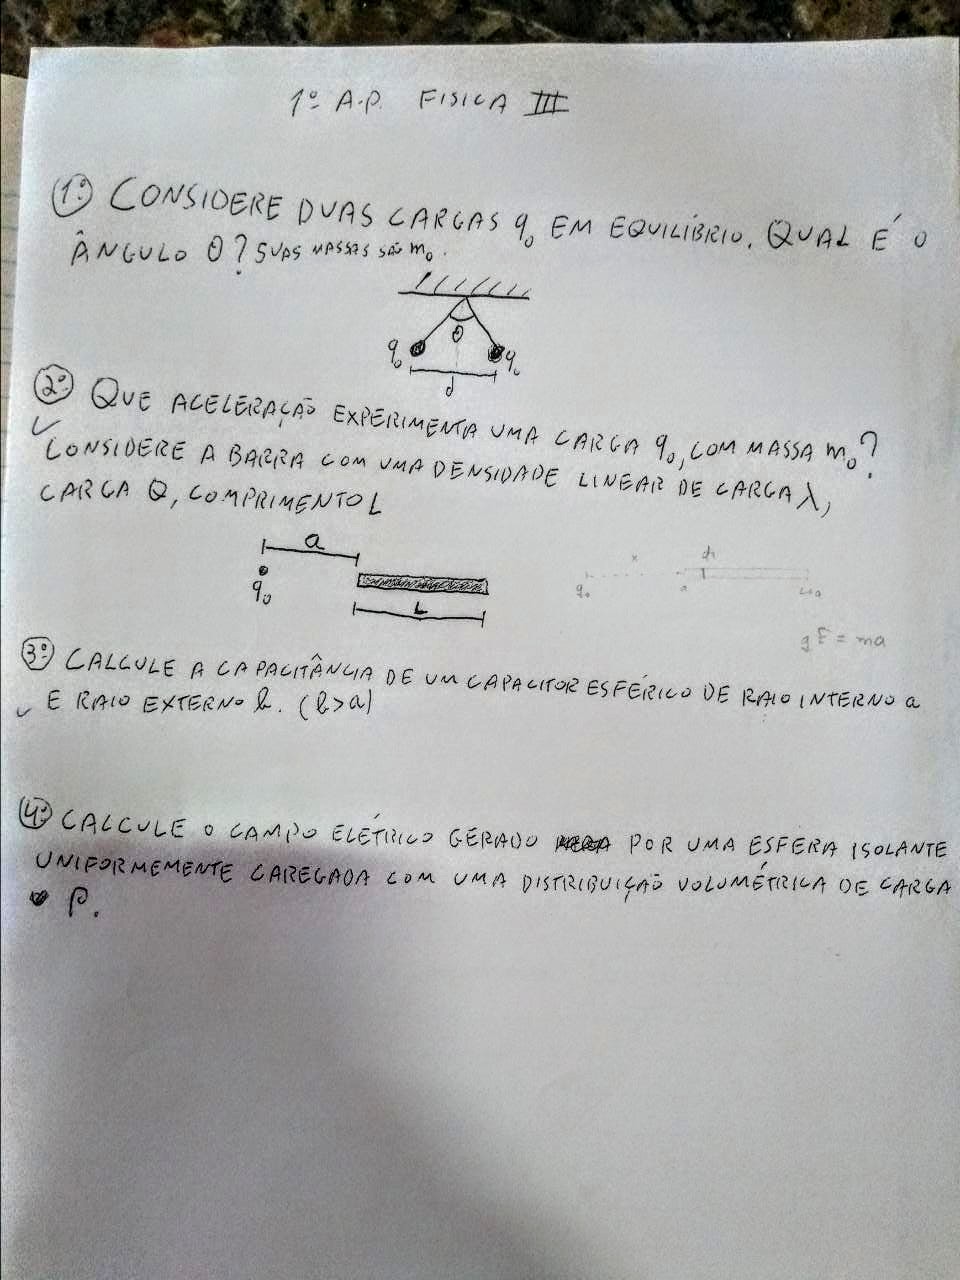 1º A.P. FISICA III
1º CONSIDERE DUAS CARGAS q₀ EM EQUILÍBRIO. QUAL É O
ÂNGULO θ? SUAS MASSAS SÃO m₀.
θ
q₀ q₀
d
2º QUE ACELERAÇÃO EXPERIMENTA UMA CARGA q₀, COM MASSA m₀?
CONSIDERE A BARRA COM UMA DENSIDADE LINEAR DE CARGA λ,
CARGA Q, COMPRIMENTO L
a
q₀
L
x
q₀ a
qE = ma
3º CALCULE A CAPACITÂNCIA DE UM CAPACITOR ESFÉRICO DE RAIO INTERNO a
E RAIO EXTERNO b. (b>a)
4º CALCULE O CAMPO ELÉTRICO GERADO POR UMA ESFERA ISOLANTE
UNIFORMEMENTE CAREGADA COM UMA DISTRIBUIÇÃO VOLUMÉTRICA DE CARGA
ρ.